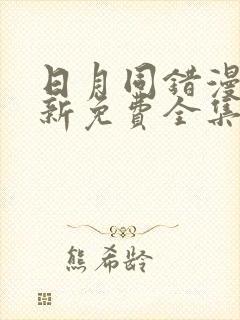 日月同错漫
新免费全集
熊希龄